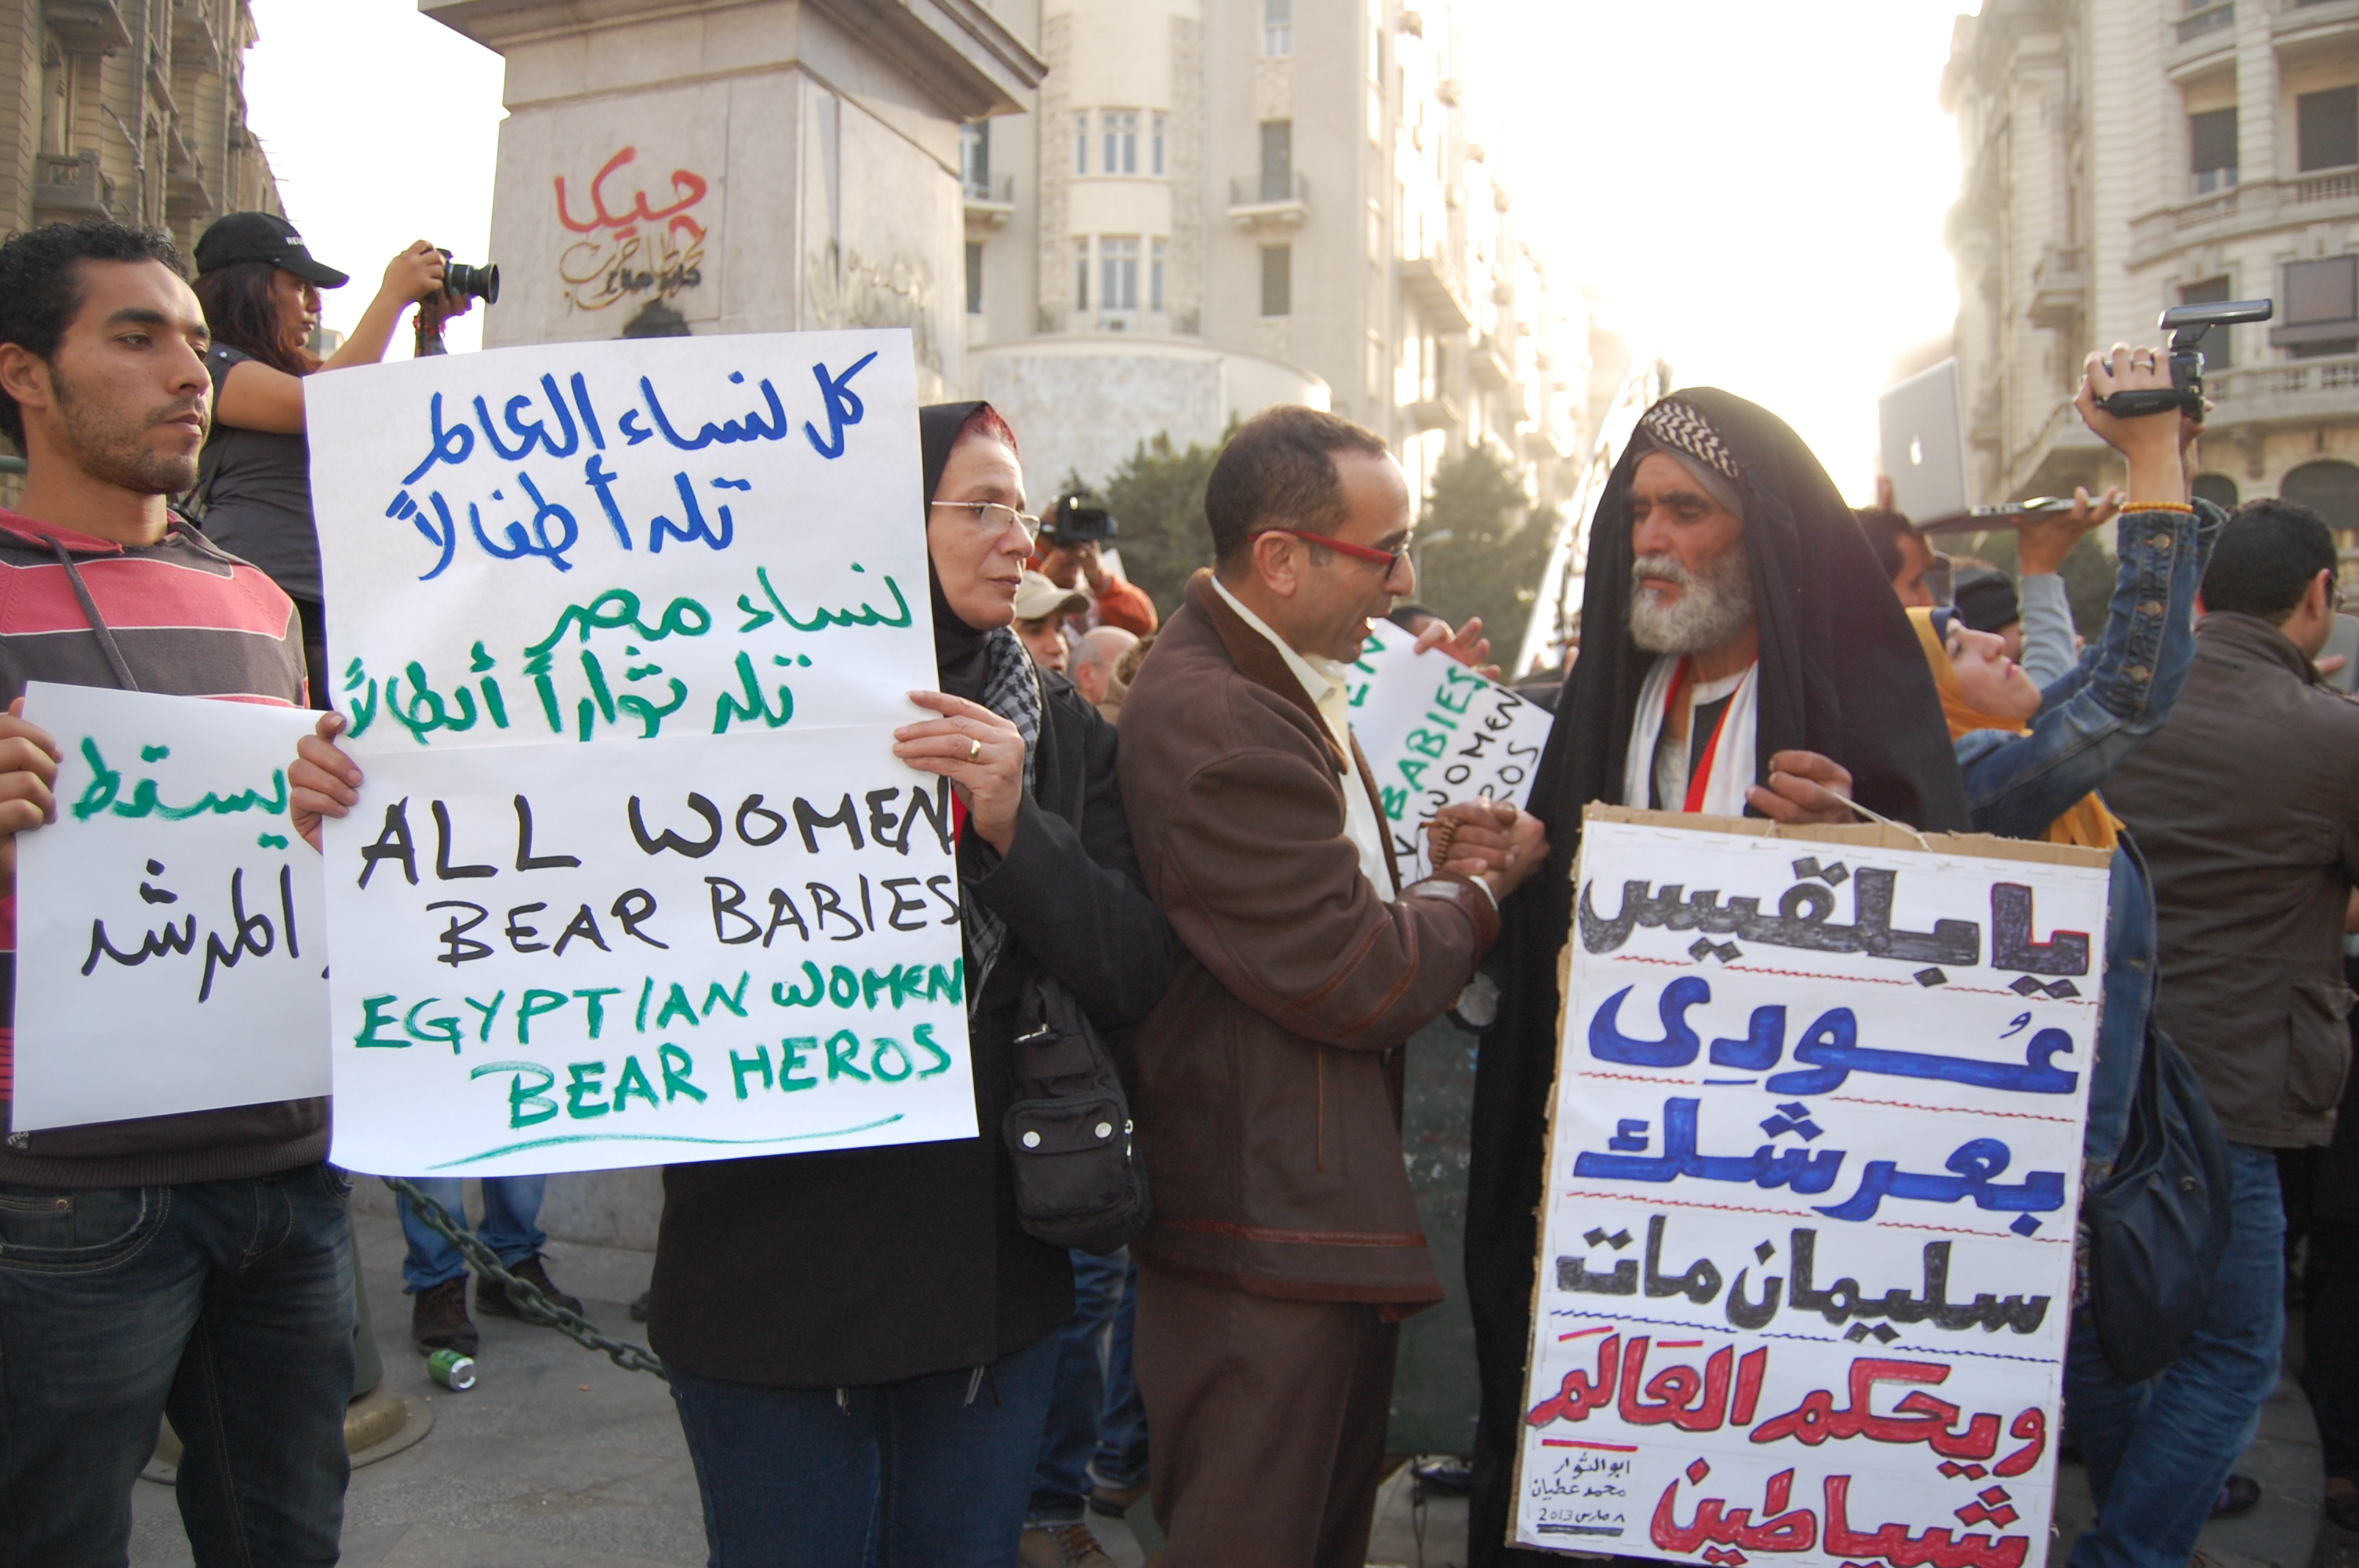 جيكا
كل نساء العالم
تلد أطفالاً
نساء مصر
تلد ثواراً أبطالاً
ALL WOMEN
BEAR BABIES
EGYPTIAN WOMEN
BEAR HEROS
يسقط
المرشد
BABIES
WOMEN
ROS
يا بلقيس
عُودِى
بعرشك
سليمان مات
ويحكم العَالَمَ
شياطين
ابو الثوار
محمد عطيان
٨ مارس 2013